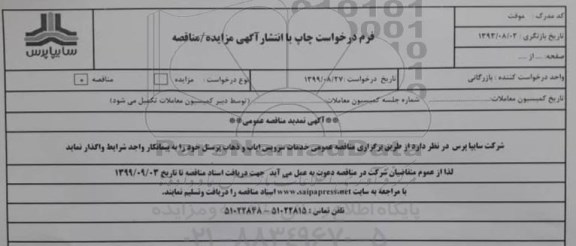 کد مدرک : موقت
تاریخ بازنگری : ۱۳۹۲/۰۸/۰۲
صفحه: ... از ...
فرم درخواست چاپ یا انتشار آگهی مزایده/مناقصه
سایپا پرس
واحد درخواست کننده : بازرگانی
تاریخ درخواست : ۱۳۹۹/۰۸/۲۷
نوع درخواست : مزایده مناقصه
تاریخ کمیسیون معاملات: شماره جلسه کمیسیون معاملات: (توسط دبیر کمیسیون معاملات تکمیل می شود)
**آگهی تمدید مناقصه عمومی**
شرکت سایپا پرس در نظر دارد از طریق برگزاری مناقصه عمومی خدمات سرویس ایاب و ذهاب پرسنل خود را به پیمانکار واجد شرایط واگذار نماید
لذا از عموم متقاضیان شرکت در مناقصه دعوت به عمل می آید جهت دریافت اسناد مناقصه تا تاریخ ۱۳۹۹/۰۹/۰۳
با مراجعه به سایت www.saipapress.net اسناد مناقصه را دریافت وتسلیم نمایند.
تلفن تماس : ۵۱۰۲۲۸۱۵ - ۵۱۰۲۲۸۴۸
ParsNamadData
۰۲۱-۸۸۳۴۹۶۷۰-۵